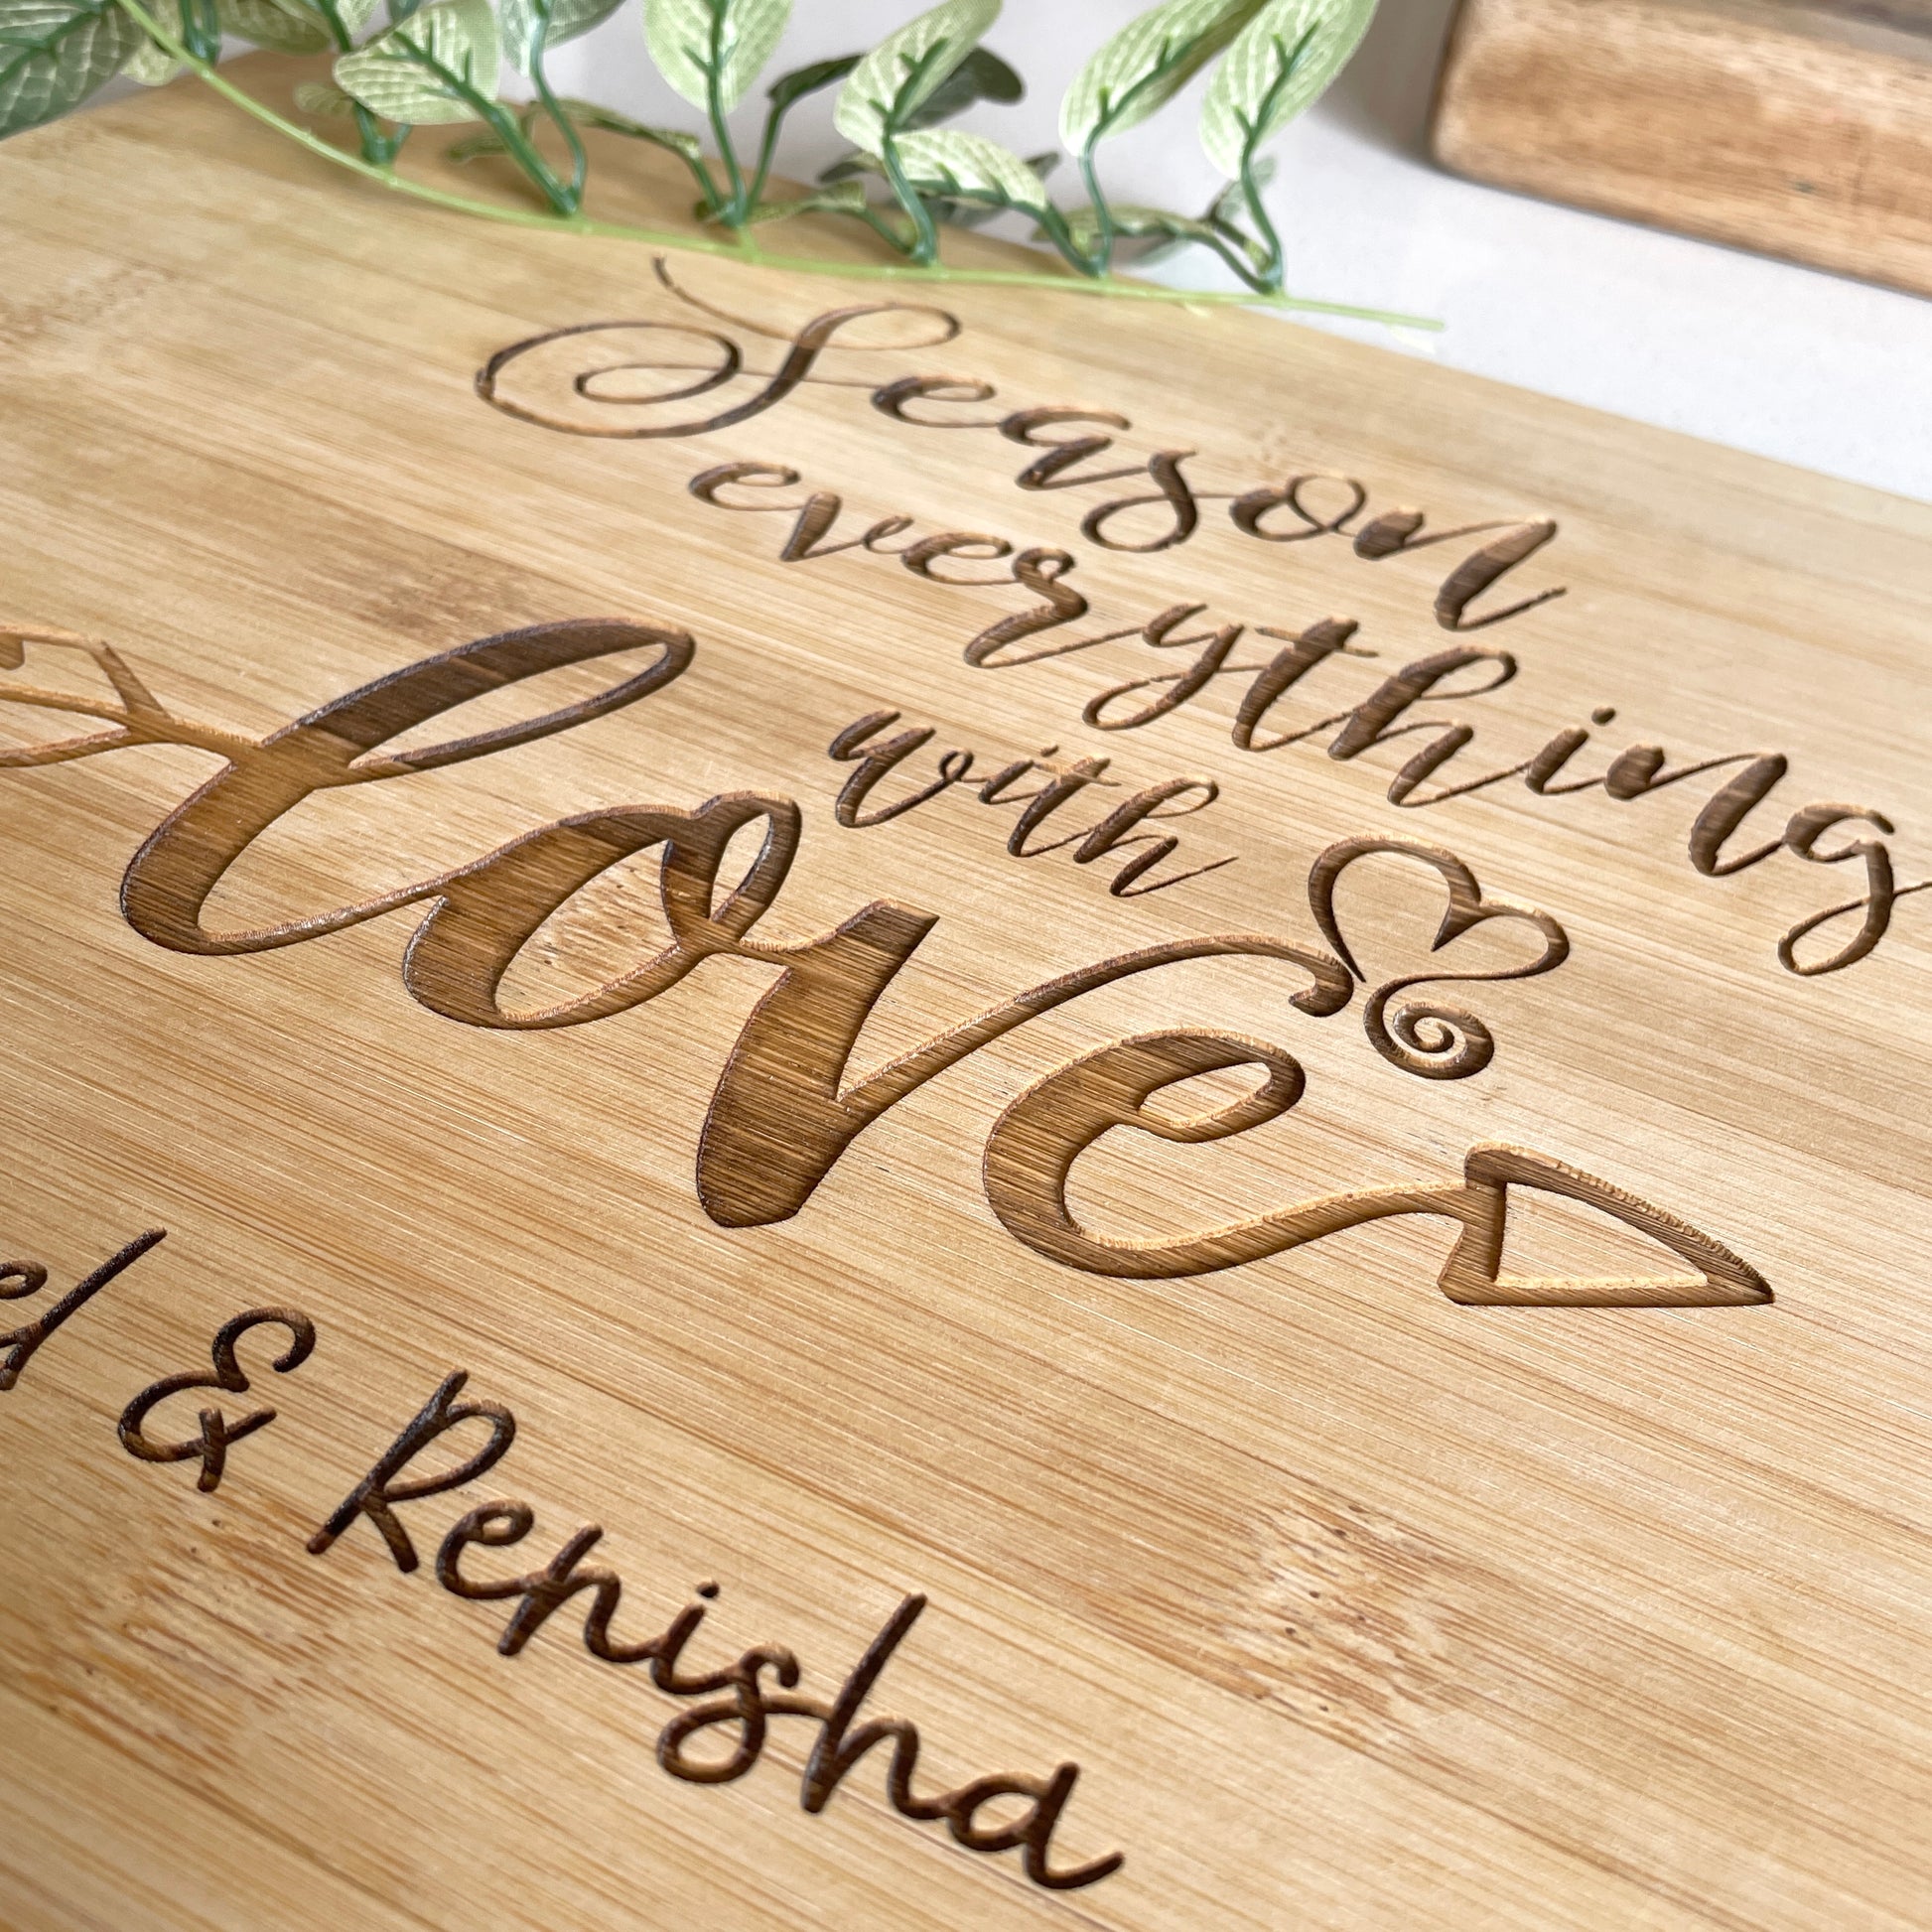 Season
everything
with
love
& Renisha